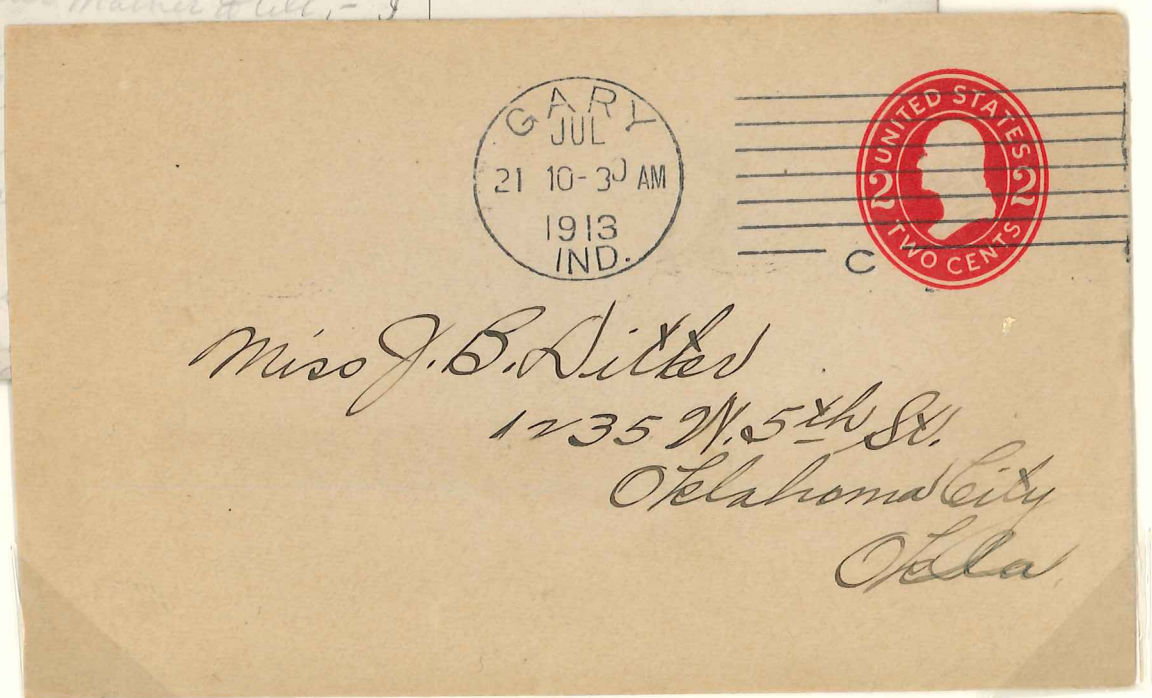 GARY
JUL
21 10-30 AM
1913
IND.
C
UNITED STATES
2 2
TWO CENTS
Miss J. B. Ditter
1235 W. 5th St.
Oklahoma City
Okla